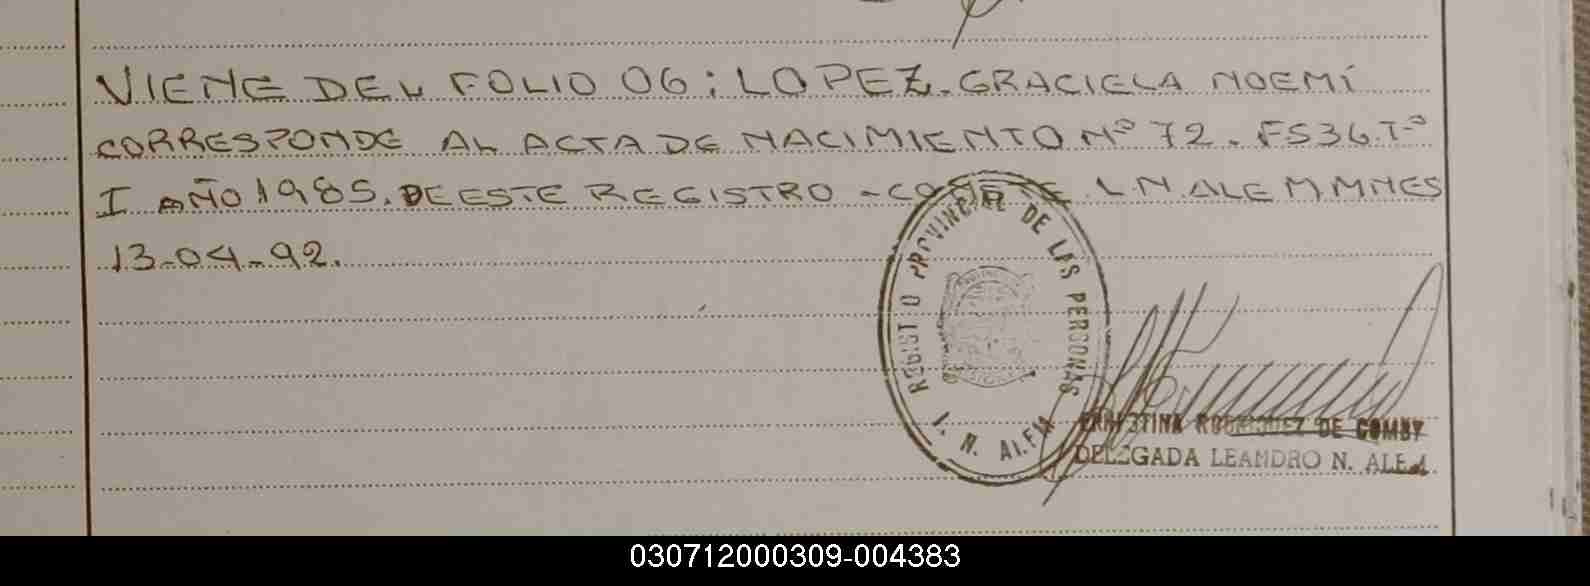 VIENE DEL FOLIO 06: LOPEZ. GRACIELA NOEMÍ
CORRESPONDE AL ACTA DE NACIMIENTO Nº 72. FS36.Tº
I AÑO 1985. DE ESTE REGISTRO - CONSTE. L.N. ALEM MNES
13-04-92.
REGISTRO PROVINCIAL DE LAS PERSONAS
L. N. ALEM
ERNESTINA RODRIGUEZ DE COMBY
DELEGADA LEANDRO N. ALEM
030712000309-004383